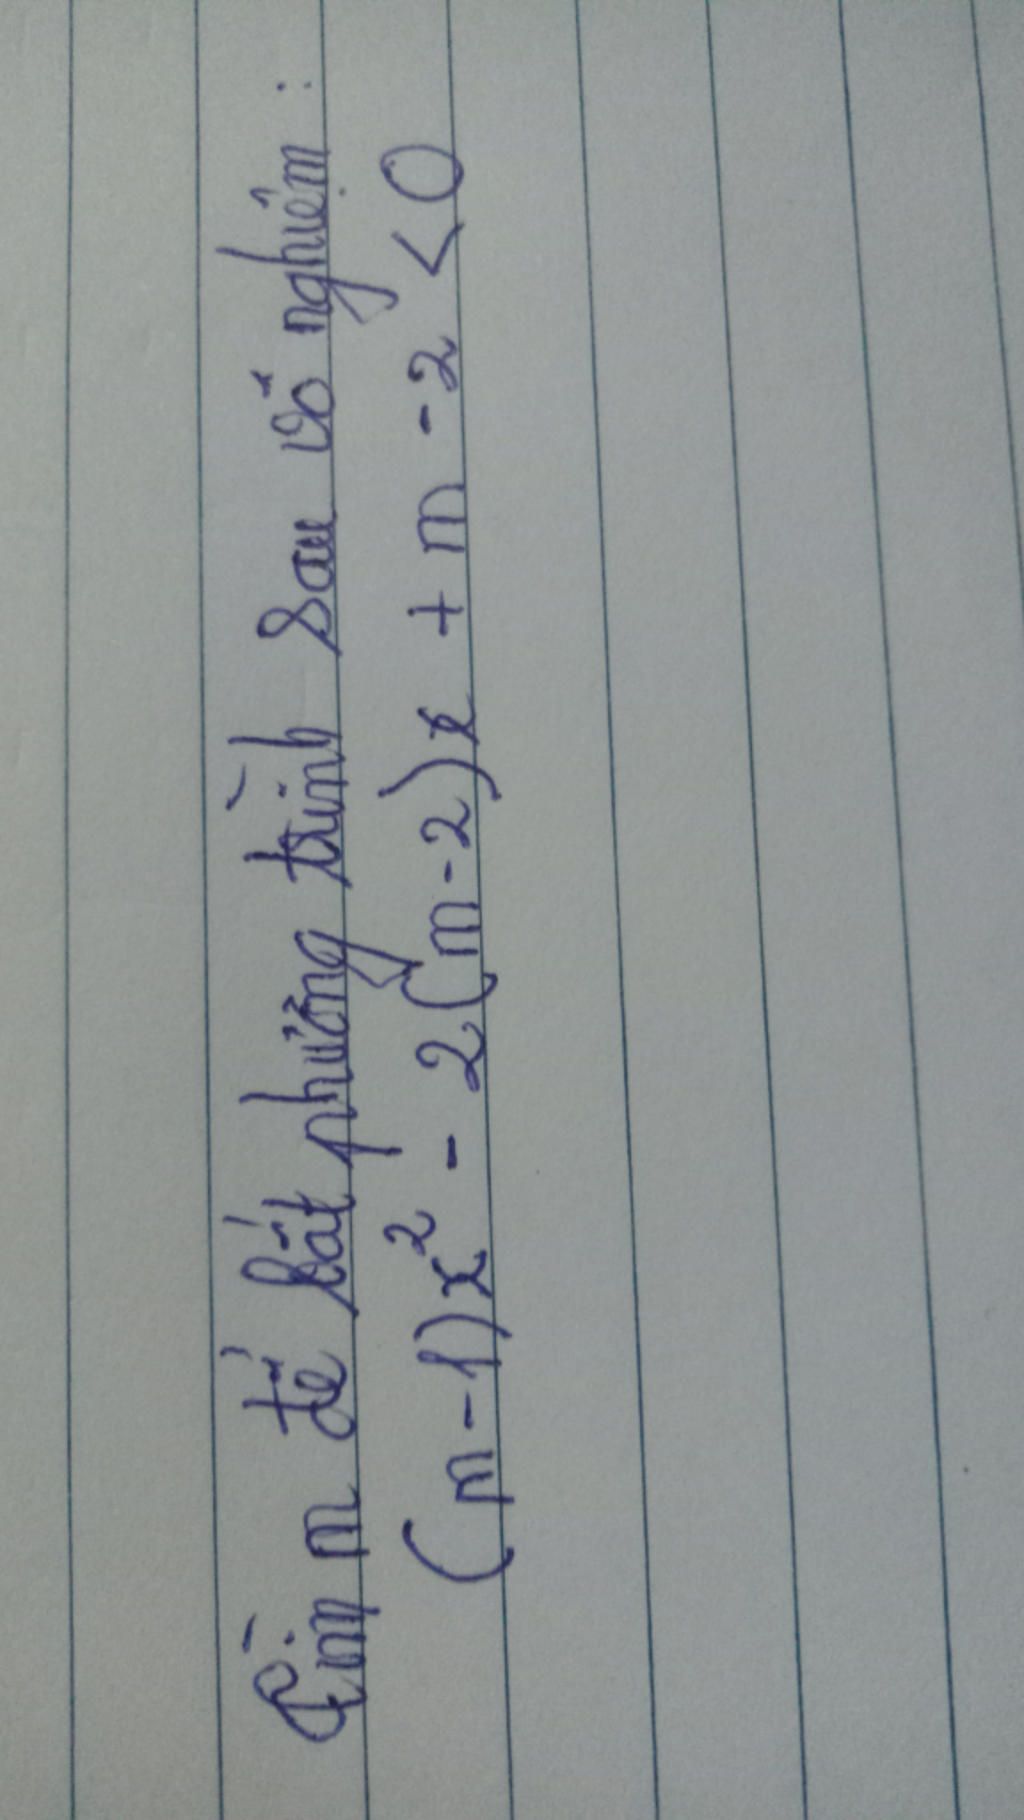 Tìm m để bất phương trình sau vô nghiệm :
(m-1)x² - 2(m-2)x + m - 2 < 0